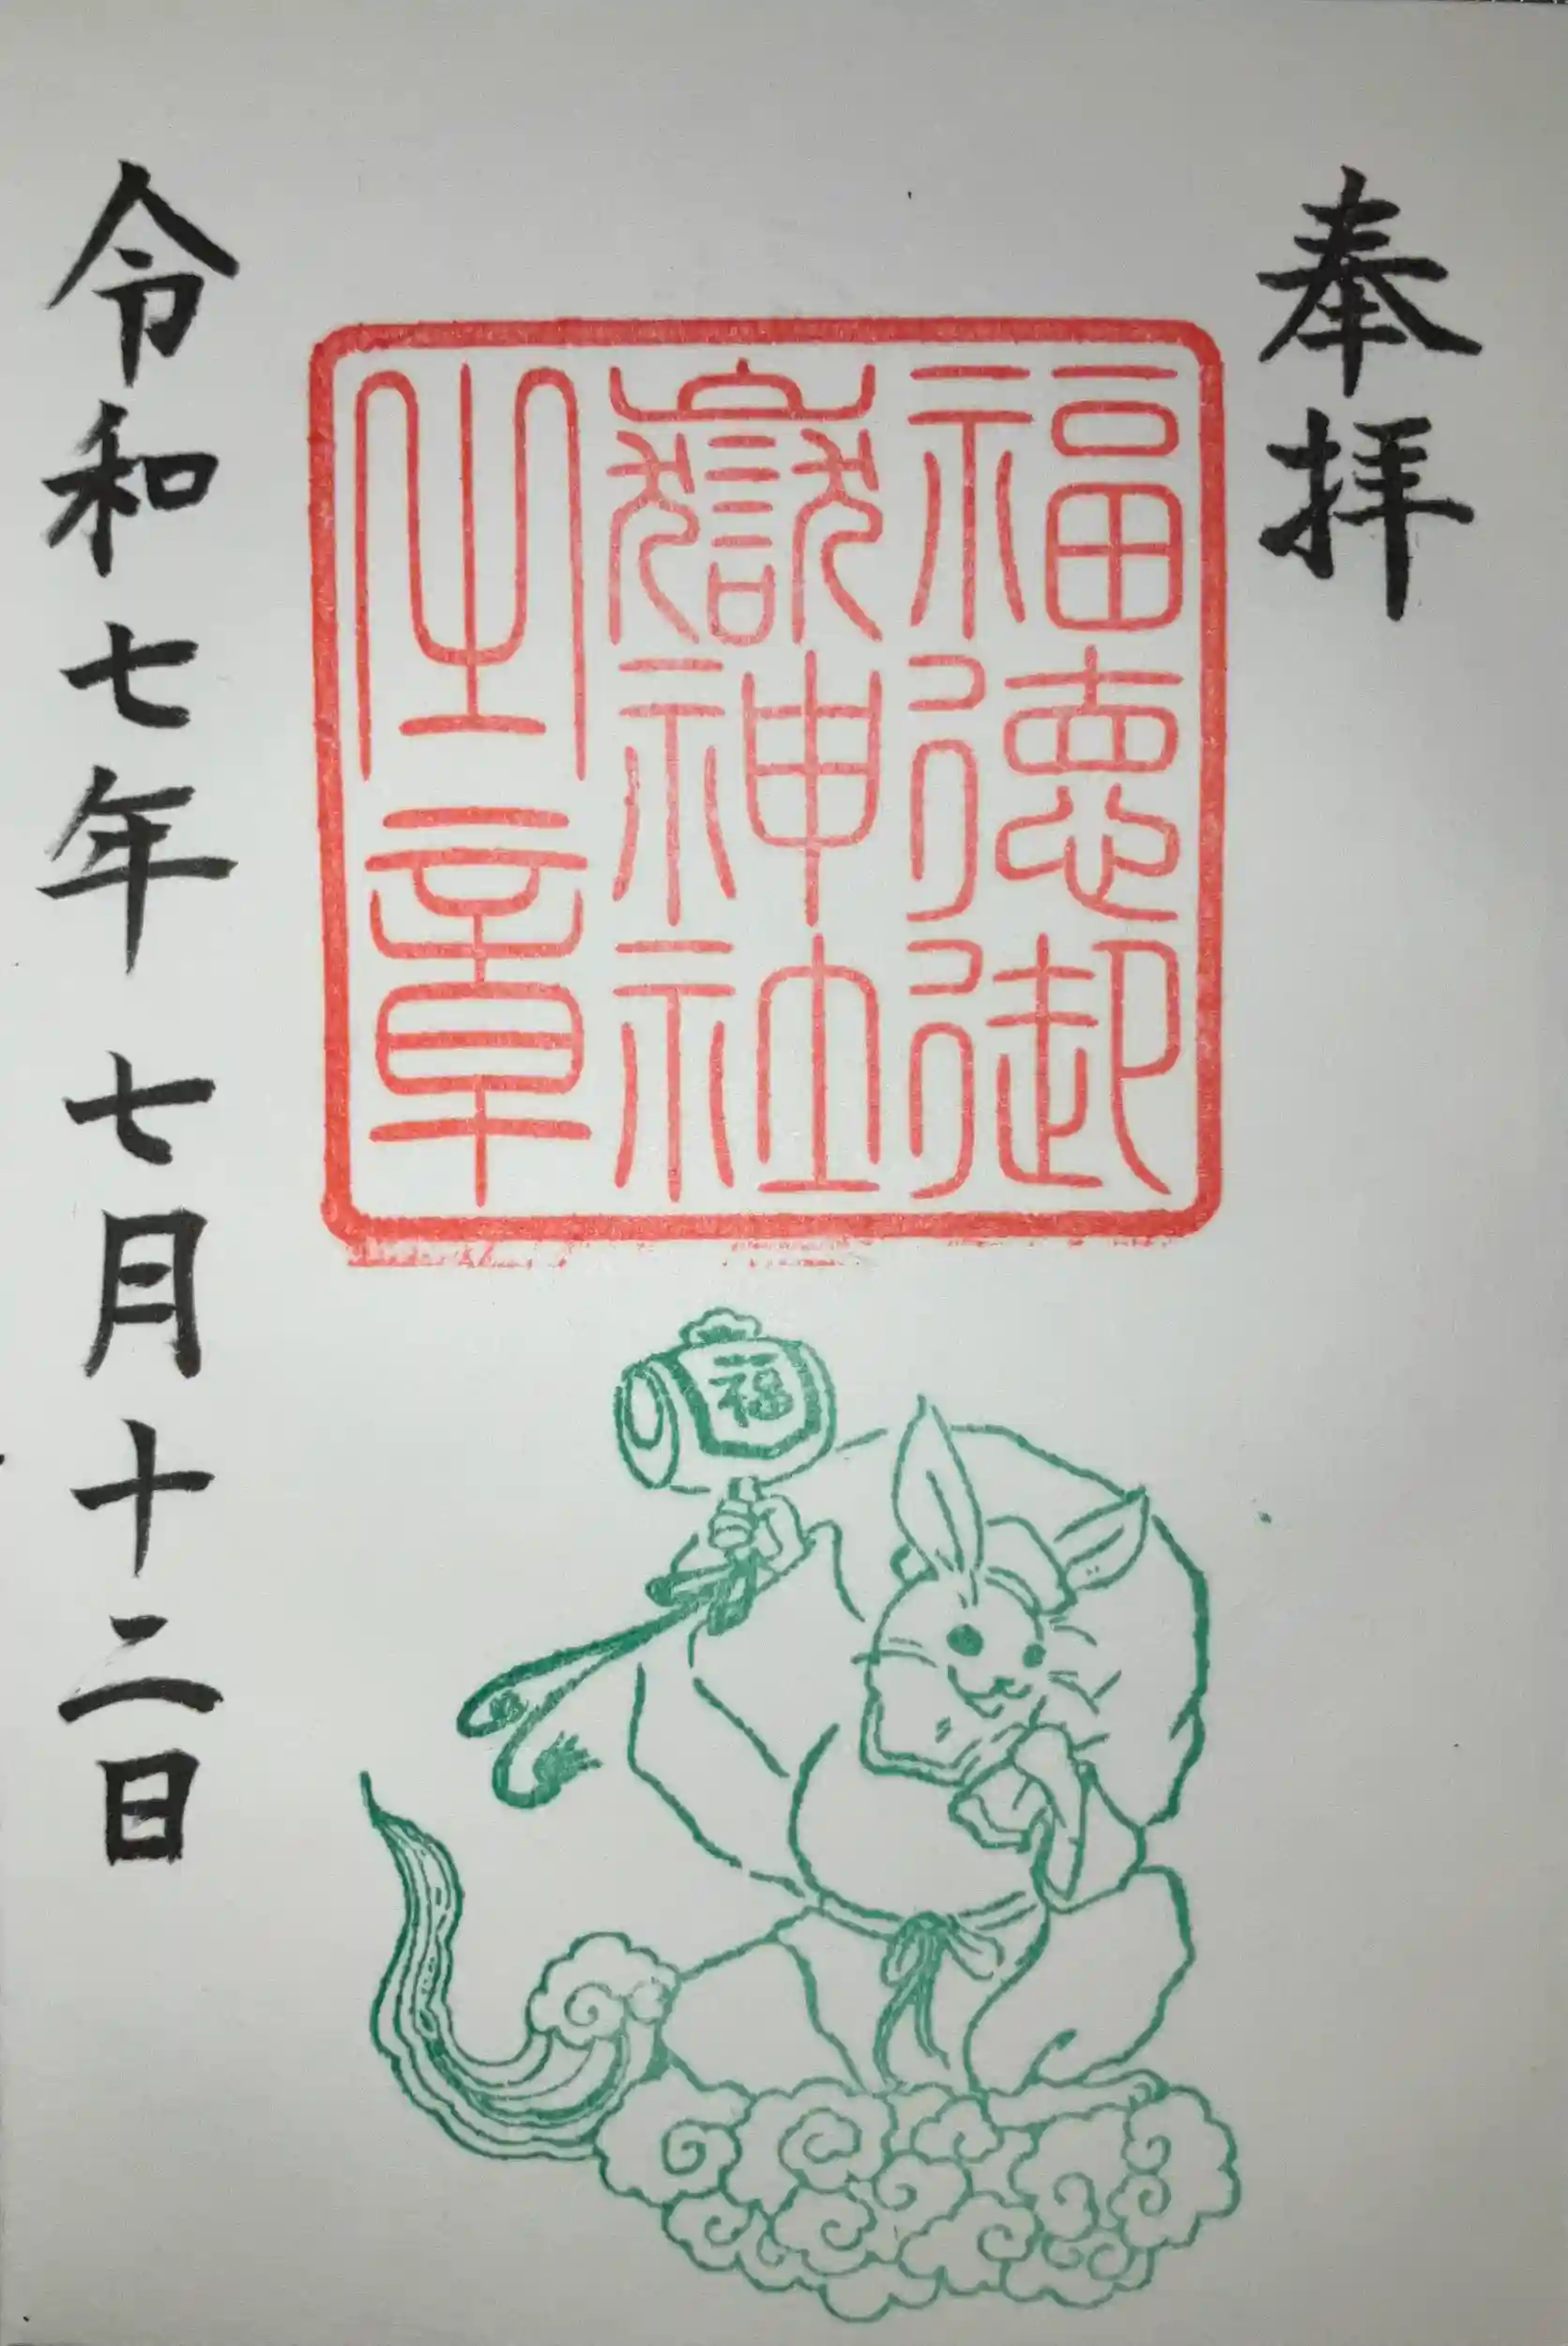 奉拝
福徳御
嶽神社
之章
福
令和七年 七月十二日